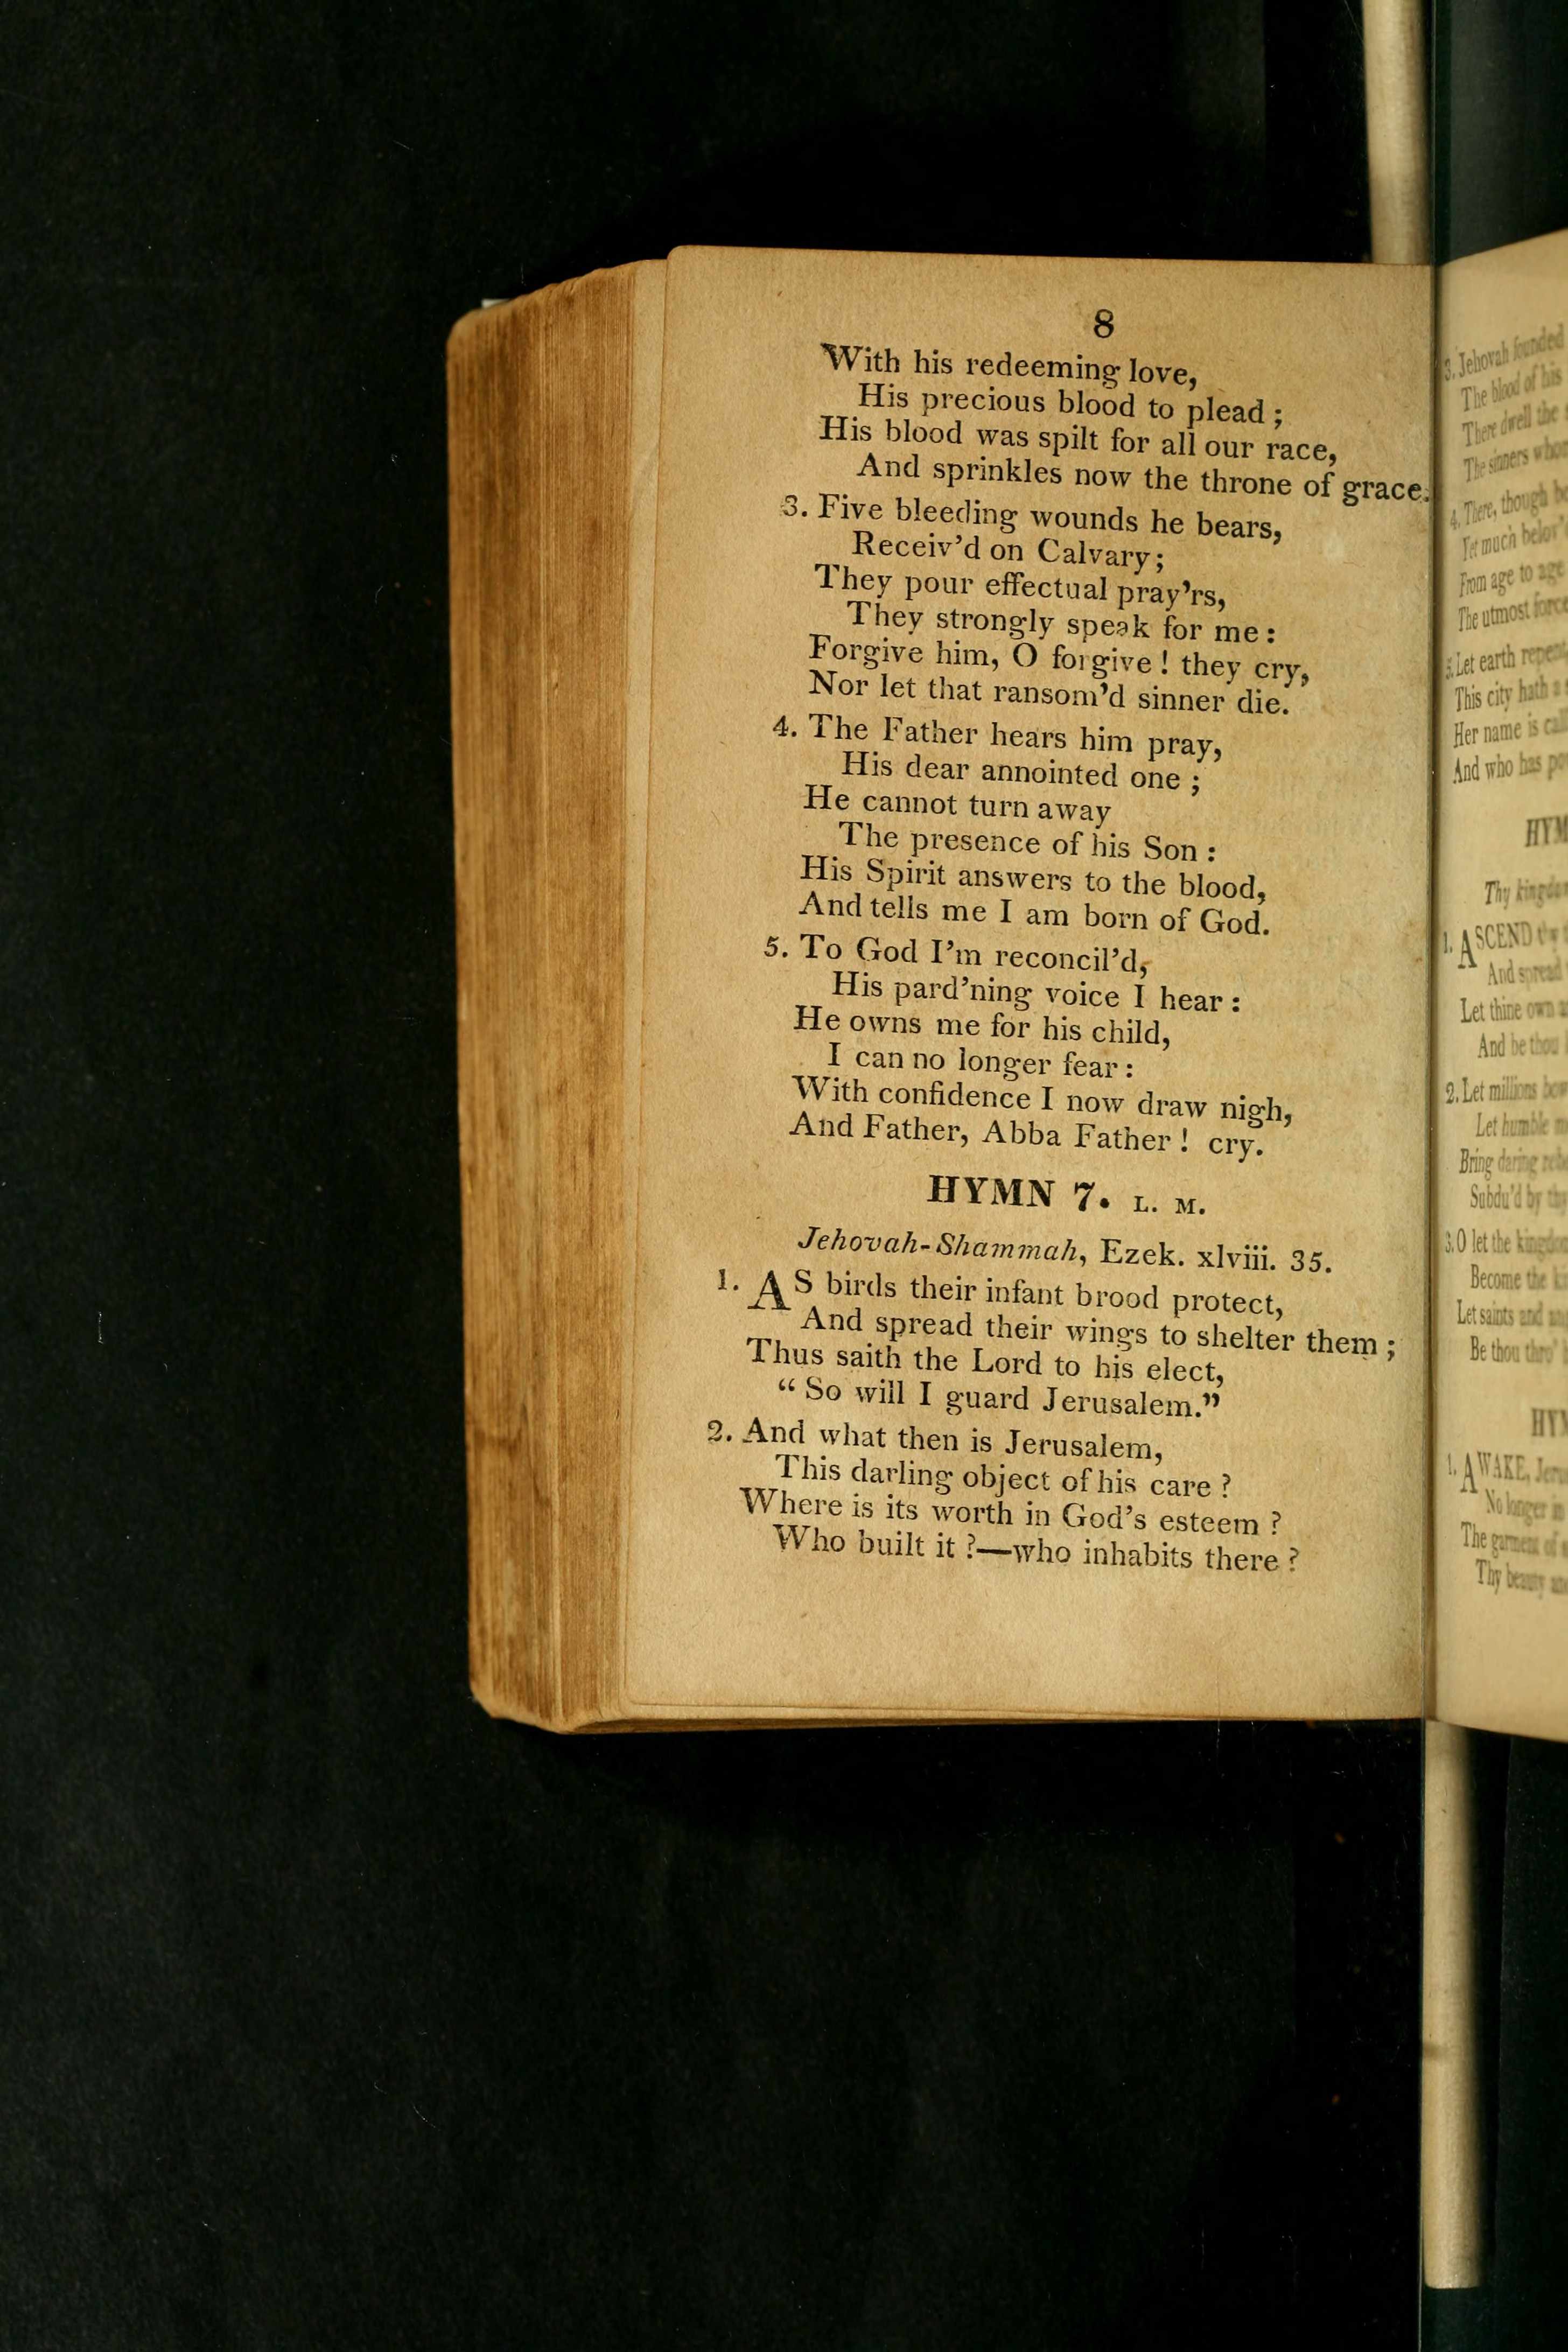 8
With his redeeming love,
His precious blood to plead ;
His blood was spilt for all our race,
And sprinkles now the throne of grace.
3. Five bleeding wounds he bears,
Receiv'd on Calvary;
They pour effectual pray'rs,
They strongly speak for me :
Forgive him, O forgive ! they cry,
Nor let that ransom'd sinner die.
4. The Father hears him pray,
His dear annointed one ;
He cannot turn away
The presence of his Son :
His Spirit answers to the blood,
And tells me I am born of God.
5. To God I'm reconcil'd,
His pard'ning voice I hear :
He owns me for his child,
I can no longer fear :
With confidence I now draw nigh,
And Father, Abba Father ! cry.
HYMN 7. L. M.
Jehovah-Shammah, Ezek. xlviii. 35.
1. AS birds their infant brood protect,
And spread their wings to shelter them ;
Thus saith the Lord to his elect,
“ So will I guard Jerusalem.”
2. And what then is Jerusalem,
This darling object of his care ?
Where is its worth in God's esteem ?
Who built it ?—who inhabits there ?
3. Jehovah founded
The blood of his
There dwell the
The sinners
4. There, though
Yet much below
From age to age
The utmost force
5. Let earth
This city hath a
Her name is
And who has
HYM
Thy
1. ASCEND
And spread
Let thine own
And be thou
2. Let millions
Let humble
Bring daring
Subdu'd by
3. O let the
Become the
Let saints and
Be thou
HY
1. AWAKE,
No longer
The garment of
Thy beauty